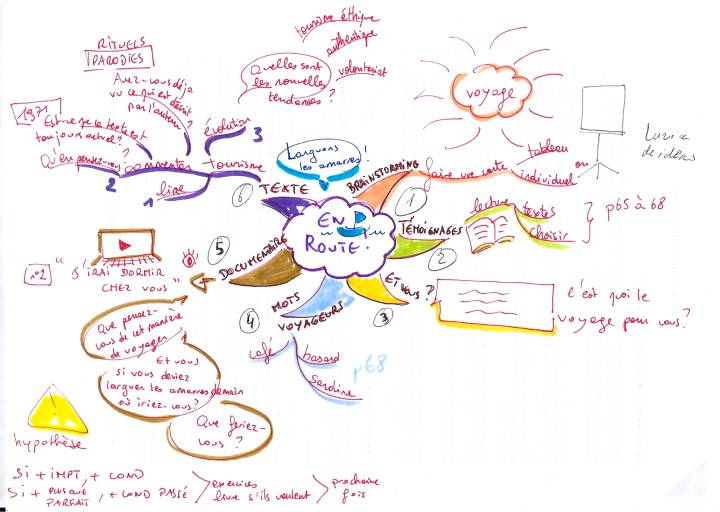 EN
ROUTE!
Larguons
les amarres!
BRAINSTORMING
1
faire une carte
tableau
ou
individuel
voyage
TÉMOIGNAGES
2
lecture textes
choisir
p65 à 68
ET VOUS?
3
C'est quoi le
voyage pour vous?
MOTS
VOYAGEURS
4
café
hasard
sardine
p68
DOCUMENTAIRE
5
n°2
"J'IRAI DORMIR
CHEZ VOUS"
Que pensez-
vous de cet manière
de voyager
Et vous
si vous deviez
larguer les amarres demain
où iriez-vous?
Que feriez-
vous?
hypothèse
Si + IMPT, + COND
Si + PLUS QUE
PARFAIT, + COND PASSÉ
exercices
livre s'ils veulent
prochaine
fois
TEXTE
6
tourisme
lire
1
commenter
2
évolution
3
Qu'en pensez-vous?
1971
Est-ce que le texte est
toujours actuel?
Avez-vous déjà
vu ce qui est décrit
par l'auteur?
RITUELS
PARODIES
Quelles sont
les nouvelle
tendances?
tourisme éthique
authentique
volontariat